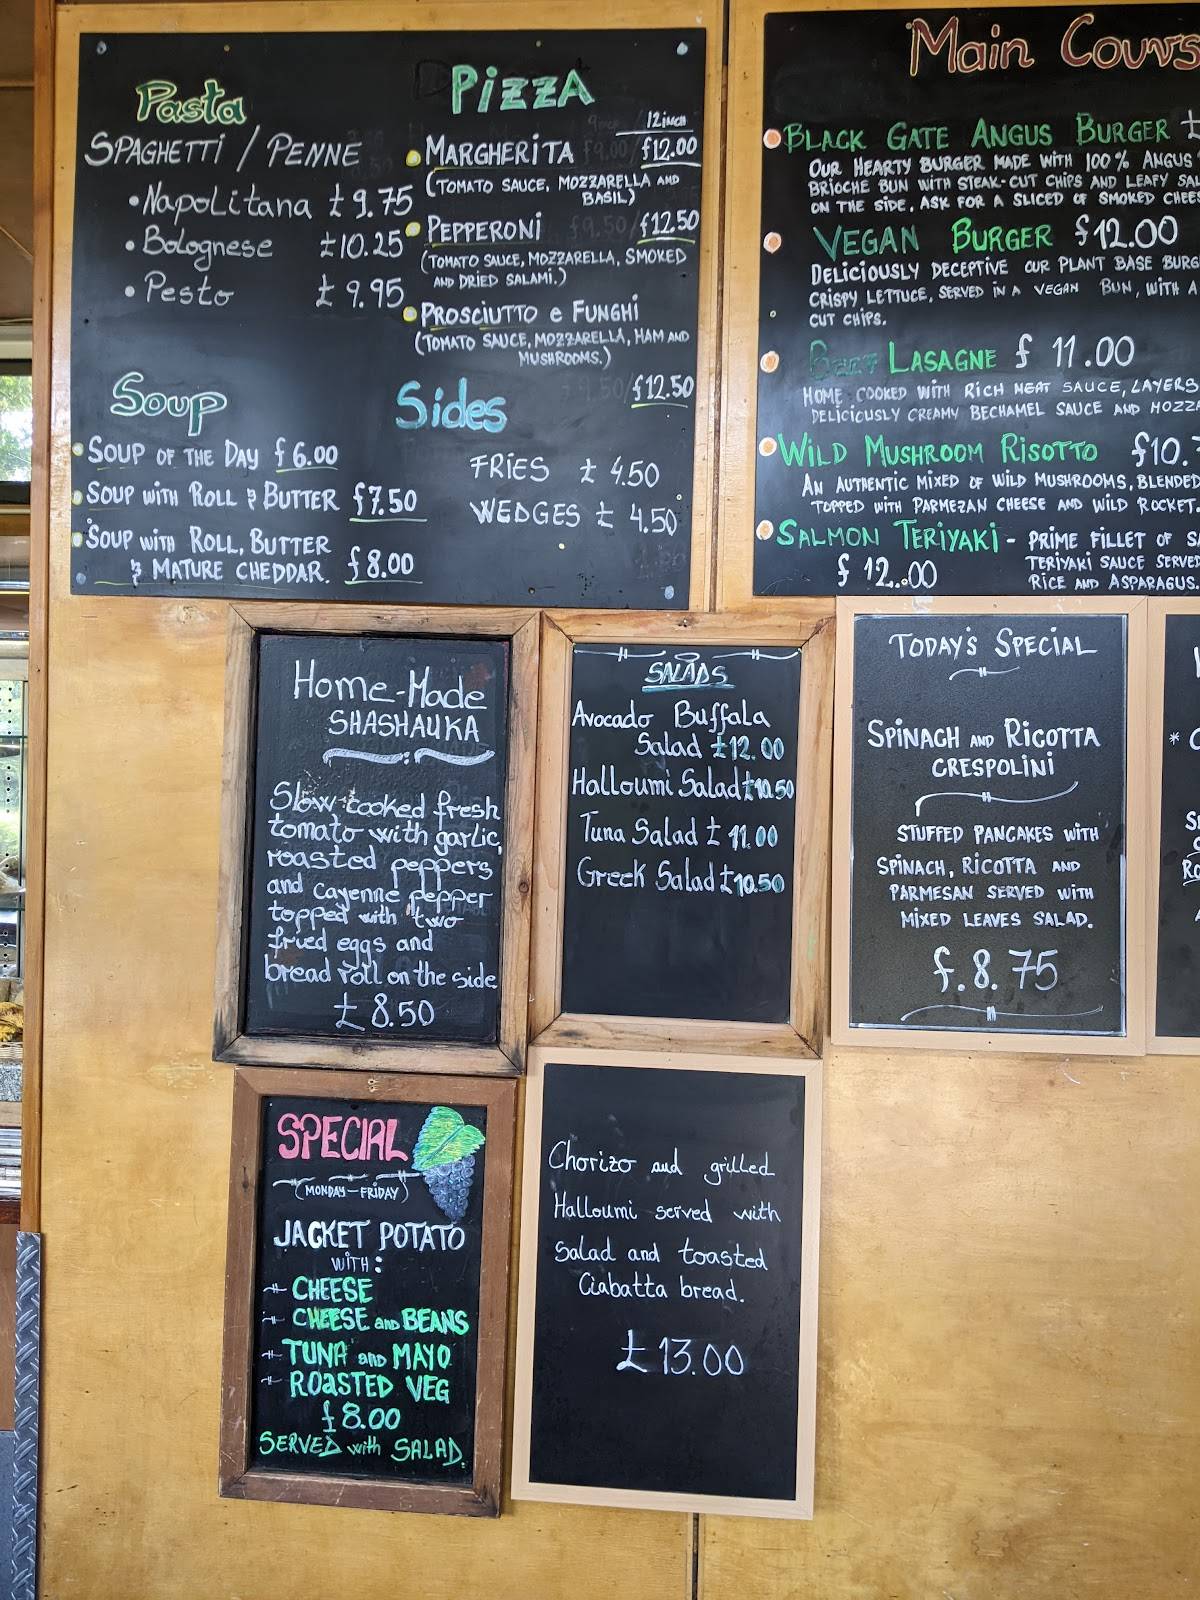 Pasta
SPAGHETTI / PENNE
• Napolitana £9.75
• Bolognese £10.25
• Pesto £9.95
PIZZA
12 inch
MARGHERITA £9.00/£12.00
(TOMATO SAUCE, MOZZARELLA AND
BASIL)
PEPPERONI £9.50/£12.50
(TOMATO SAUCE, MOZZARELLA, SMOKED
AND DRIED SALAMI.)
PROSCIUTTO e FUNGHI
(TOMATO SAUCE, MOZZARELLA, HAM AND
MUSHROOMS.)
£9.50/£12.50
Soup
SOUP OF THE DAY £6.00
SOUP WITH ROLL & BUTTER £7.50
SOUP WITH ROLL, BUTTER
& MATURE CHEDDAR. £8.00
Sides
FRIES £4.50
WEDGES £4.50
Main Cours
BLACK GATE ANGUS BURGER £
OUR HEARTY BURGER MADE WITH 100% ANGUS
BRIOCHE BUN WITH STEAK-CUT CHIPS AND LEAFY SAL
ON THE SIDE, ASK FOR A SLICED OF SMOKED CHEES
VEGAN BURGER £12.00
DELICIOUSLY DECEPTIVE OUR PLANT BASE BURG
CRISPY LETTUCE, SERVED IN A VEGAN BUN, WITH A
CUT CHIPS.
BEEF LASAGNE £11.00
HOME COOKED WITH RICH MEAT SAUCE, LAYERS
DELICIOUSLY CREAMY BECHAMEL SAUCE AND MOZZA
WILD MUSHROOM RISOTTO £10.
AN AUTHENTIC MIXED OF WILD MUSHROOMS, BLENDED
TOPPED WITH PARMEZAN CHEESE AND WILD ROCKET.
SALMON TERIYAKI - PRIME FILLET OF SA
£12.00 TERIYAKI SAUCE SERVED
RICE AND ASPARAGUS.
Home-Made
SHASHAUKA
Slow cooked fresh
tomato with garlic,
roasted peppers
and cayenne pepper
topped with two
fried eggs and
bread roll on the side
£8.50
SALADS
Avocado Buffala
Salad £12.00
Halloumi Salad £10.50
Tuna Salad £11.00
Greek Salad £10.50
TODAY'S SPECIAL
SPINACH AND RICOTTA
CRESPOLINI
STUFFED PANCAKES WITH
SPINACH, RICOTTA AND
PARMESAN SERVED WITH
MIXED LEAVES SALAD.
£.8.75
SPECIAL
(MONDAY-FRIDAY)
JACKET POTATO
WITH:
CHEESE
CHEESE and BEANS
TUNA and MAYO
ROASTED VEG
£8.00
SERVED with SALAD.
Chorizo and grilled
Halloumi served with
Salad and toasted
Ciabatta bread.
£13.00